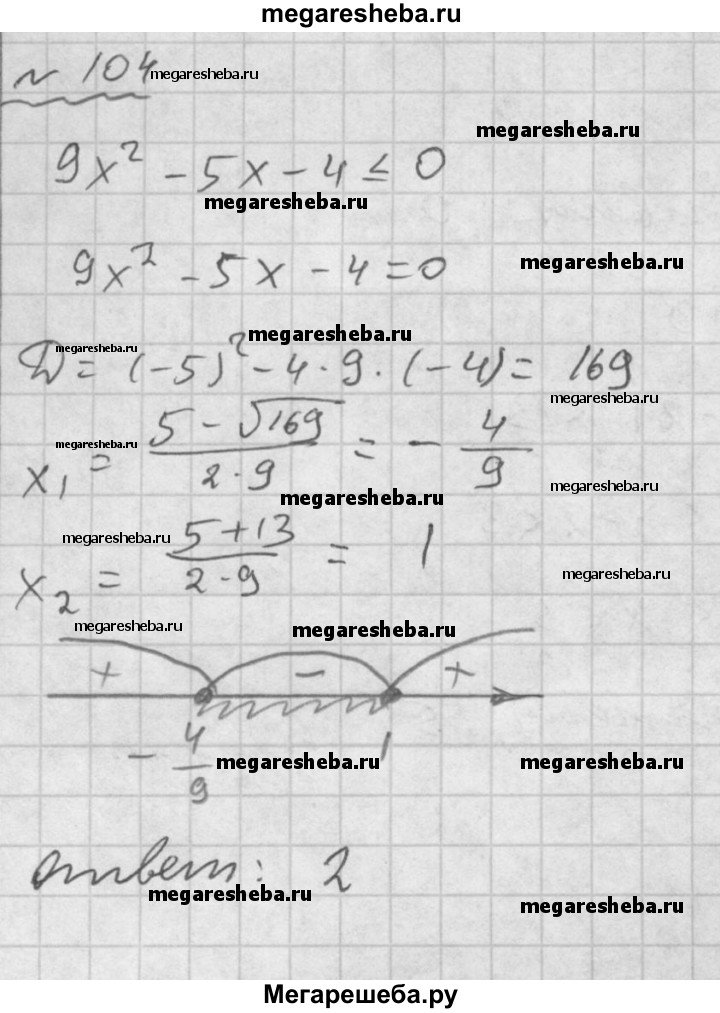 megaresheba.ru
№ 104 megaresheba.ru
megaresheba.ru
9x² - 5x - 4 ≤ 0
megaresheba.ru
9x² - 5x - 4 = 0 megaresheba.ru
megaresheba.ru
megaresheba.ru
D = (-5)² - 4 · 9 · (-4) = 169
megaresheba.ru
megaresheba.ru
x₁ = (5 - √169)/(2 · 9) = - 4/9
megaresheba.ru
megaresheba.ru
megaresheba.ru
x₂ = (5 + 13)/(2 · 9) = 1
megaresheba.ru
megaresheba.ru
megaresheba.ru
+ - +
- 4/9 1
megaresheba.ru
megaresheba.ru
ответ: 2
megaresheba.ru
megaresheba.ru
Мегарешеба.ру